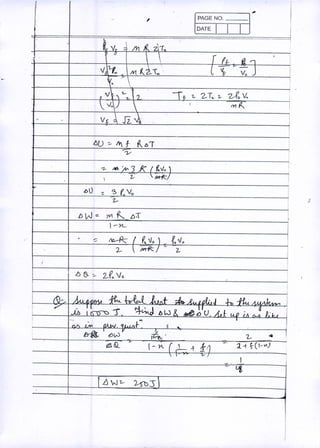 PAGE NO.
DATE
P_f V_f = n R 2T₀
[ P_f / V_f = P₀ / V₀ ]
V_f² P₀ / V₀ = n R 2T₀
(V_f / V₀)² = 2
T_f = 2T₀ = 2P₀V₀ / nR
V_f = √2 V₀
ΔU = n f/2 R ΔT
= n 3/2 R (P₀V₀ / nR)
ΔU = 3/2 P₀V₀
ΔW = n R ΔT / 1-x
= nR/2 (P₀V₀ / nR) = P₀V₀ / 2
ΔQ = 2P₀V₀
Q- Suppose the total heat supplied to the system
is 1000 J. Find ΔW & ΔU. Set up is as like
as in prev. quest^n.
ΔW / ΔQ = 1 / (1-x) (1/(1-x) + f/2) = 2 / 2+f(1-x)
= 1/4
ΔW = 250J